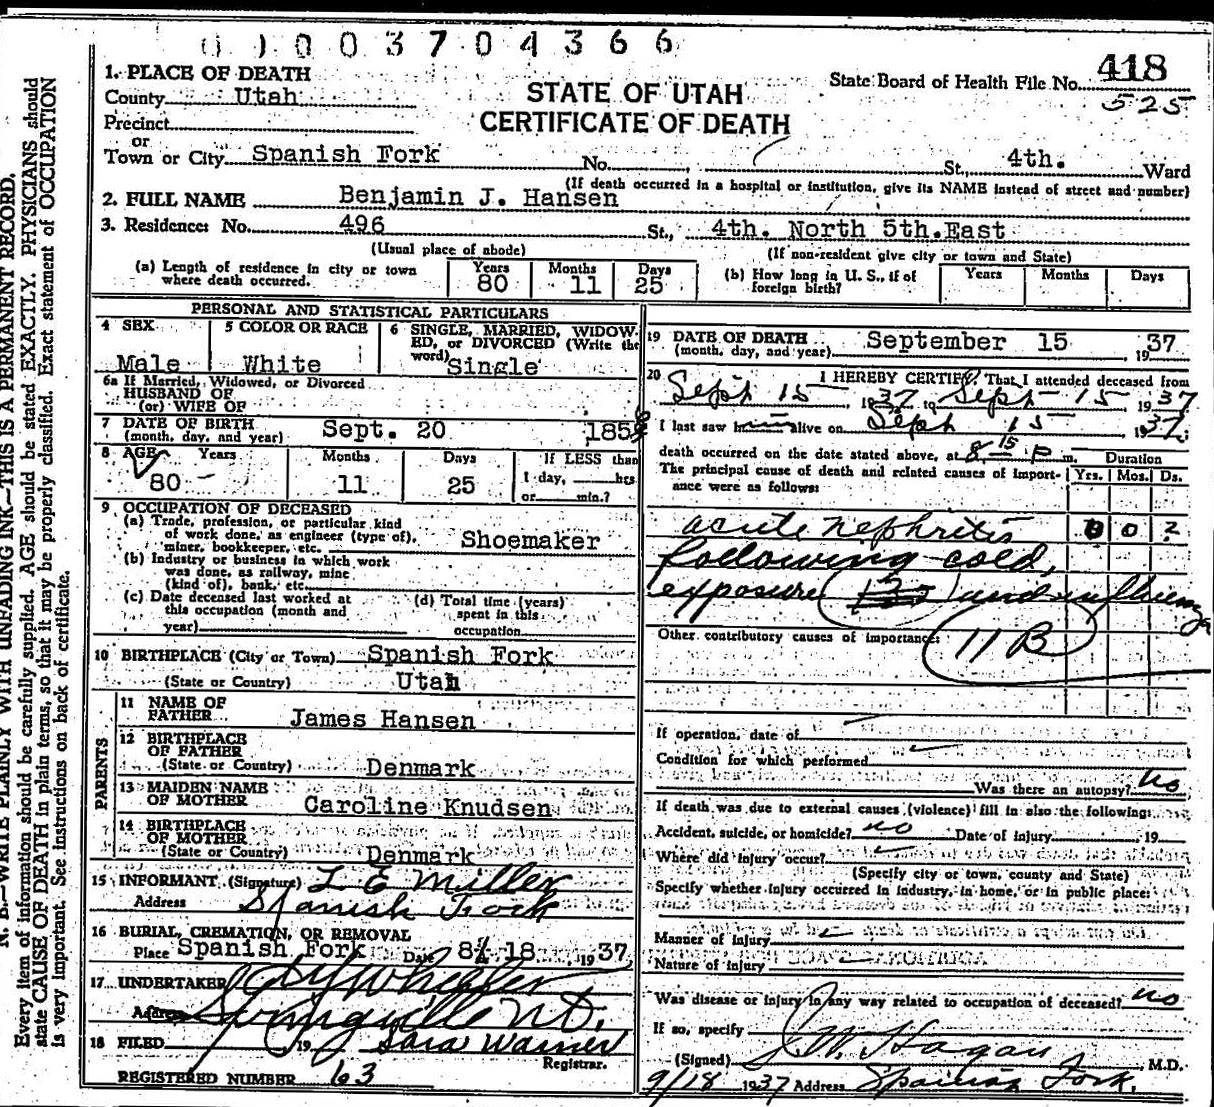 0 1 0 0 3 7 0 4 3 6 6
1. PLACE OF DEATH
County Utah
Precinct
or
Town or City Spanish Fork No. St., 4th. Ward
STATE OF UTAH
CERTIFICATE OF DEATH
State Board of Health File No. 418
525
(If death occurred in a hospital or institution, give its NAME instead of street and number)
2. FULL NAME Benjamin J. Hansen
3. Residence: No. 496 St., 4th. North 5th. East
(Usual place of abode) (If non-resident give city or town and State)
(a) Length of residence in city or town where death occurred. Years 80 Months 11 Days 25
(b) How long in U. S., if of foreign birth? Years Months Days
PERSONAL AND STATISTICAL PARTICULARS
4 SEX Male
5 COLOR OR RACE White
6 SINGLE, MARRIED, WIDOWED, or DIVORCED (Write the word) Single
6a If Married, Widowed, or Divorced
HUSBAND OF
(or) WIFE OF
7 DATE OF BIRTH
(month, day, and year) Sept. 20 185
8 AGE Years 80 Months 11 Days 25
If LESS than
1 day, hrs
or min.?
9 OCCUPATION OF DECEASED
(a) Trade, profession, or particular kind
of work done, as engineer (type of),
miner, bookkeeper, etc. Shoemaker
(b) Industry or business in which work
was done, as railway, mine
(kind of), bank, etc.
(c) Date deceased last worked at
this occupation (month and
year)
(d) Total time (years)
spent in this
occupation
10 BIRTHPLACE (City or Town) Spanish Fork
(State or Country) Utah
PARENTS
11 NAME OF
FATHER James Hansen
12 BIRTHPLACE
OF FATHER
(State or Country) Denmark
13 MAIDEN NAME
OF MOTHER Caroline Knudsen
14 BIRTHPLACE
OF MOTHER
(State or Country) Denmark
15 INFORMANT (Signature) L E Miller
Address Spanish Fork
16 BURIAL, CREMATION, OR REMOVAL
Place Spanish Fork Date 18 1937
17 UNDERTAKER Wheeler
Address Springville
18 FILED 19 Sara Warner
Registrar.
REGISTERED NUMBER 63
19 DATE OF DEATH
(month, day, and year) September 15 1937
20 I HEREBY CERTIFY, That I attended deceased from
Sept 15 1937 to Sept 15 1937
I last saw him alive on Sept 15 1937;
death occurred on the date stated above, at 8 15 P m.
Duration
The principal cause of death and related causes of importance were as follows: Yrs. Mos. Ds.
acute nephritis 0 0 2
following cold,
exposure and influenza
Other contributory causes of importance:
11 B
If operation, date of
Condition for which performed
Was there an autopsy? no
If death was due to external causes (violence) fill in also the following:
Accident, suicide, or homicide? no Date of injury 19
Where did injury occur?
(Specify city or town, county and State)
Specify whether injury occurred in industry, in home, or in public place:
Manner of injury
Nature of injury
Was disease or injury in any way related to occupation of deceased? no
If so, specify
(Signed) J. W. Hagan, M.D.
9/18 1937 Address Spanish Fork.
N. B.—WRITE PLAINLY WITH UNFADING INK—THIS IS A PERMANENT RECORD.
Every item of information should be carefully supplied. AGE should be stated EXACTLY. PHYSICIANS should
state CAUSE OF DEATH in plain terms, so that it may be properly classified. Exact statement of OCCUPATION
is very important. See instructions on back of certificate.